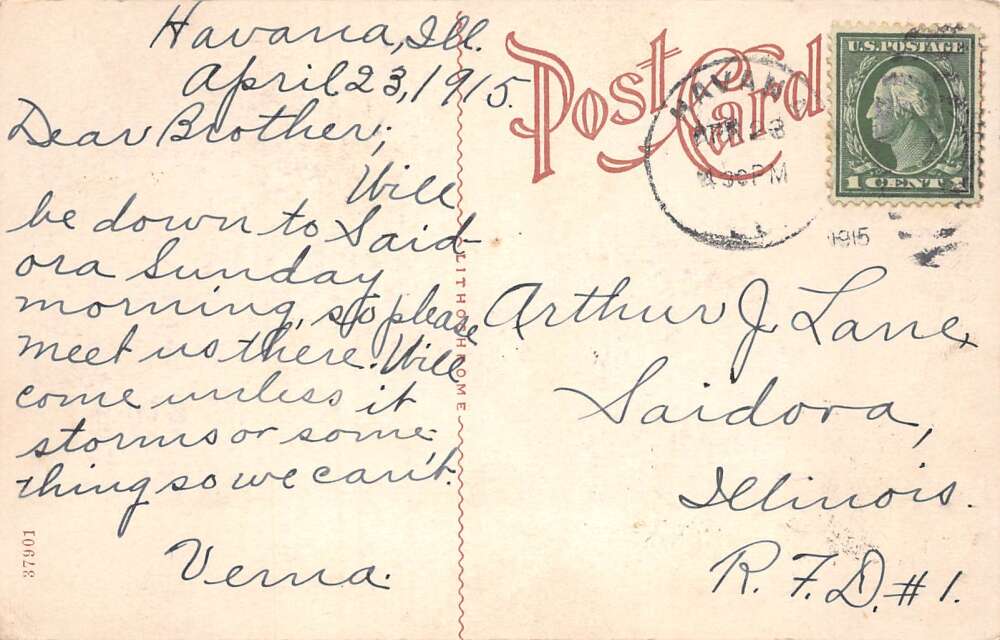 Havana, Ill.
April 23, 1915.
Dear Brother;
Will
be down to Said-
ora Sunday
morning, so please
meet us there. Will
come unless it
storms or some-
thing so we can't.
Verna.
37901
LITHOCHROME
Post Card
U.S. POSTAGE
1 CENT 1
HAVANA
APR 23
30 PM
1915
Arthur J. Lane,
Saidora,
Illinois.
R.F.D. #1.